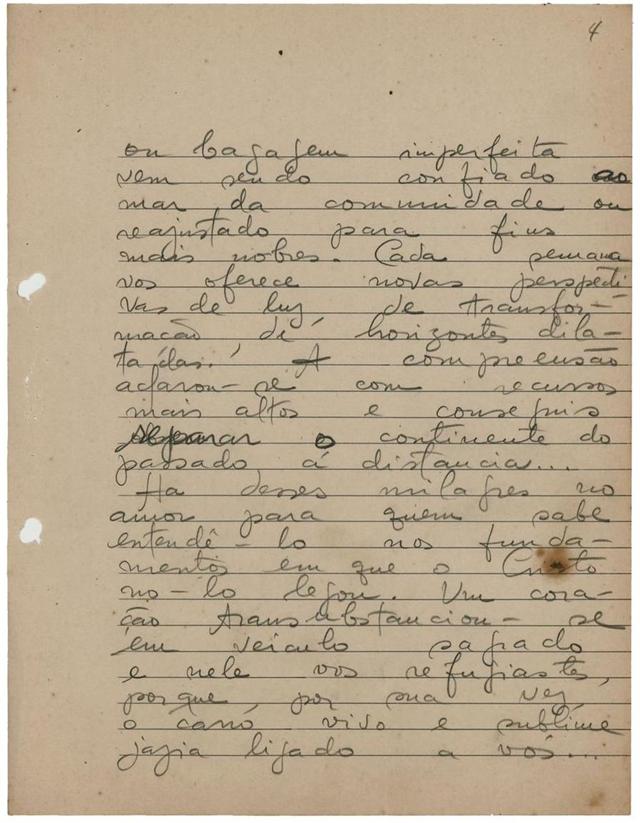 4
ou bagagem imperfeita
vem sendo confiado ao
mar da comunidade ou
reajustado para fins
mais nobres. Cada semana
vos oferece novas perspecti
vas de luz, de transfor-
macão, de horizontes dila-
tadas. A compreensão
aclarou-se com recursos
mais altos e conseguis
separar o continente do
passado á distancia...
Ha desses milagres no
amor para quem sabe
entendê-lo nos funda-
mentos em que o Cristo
no-lo legou. Um cora-
ção transubstanciou-se
em veiculo sagrado
e nele vos refugiastes,
porque, por sua vez,
o carro vivo e sublime
jazia ligado a vós...